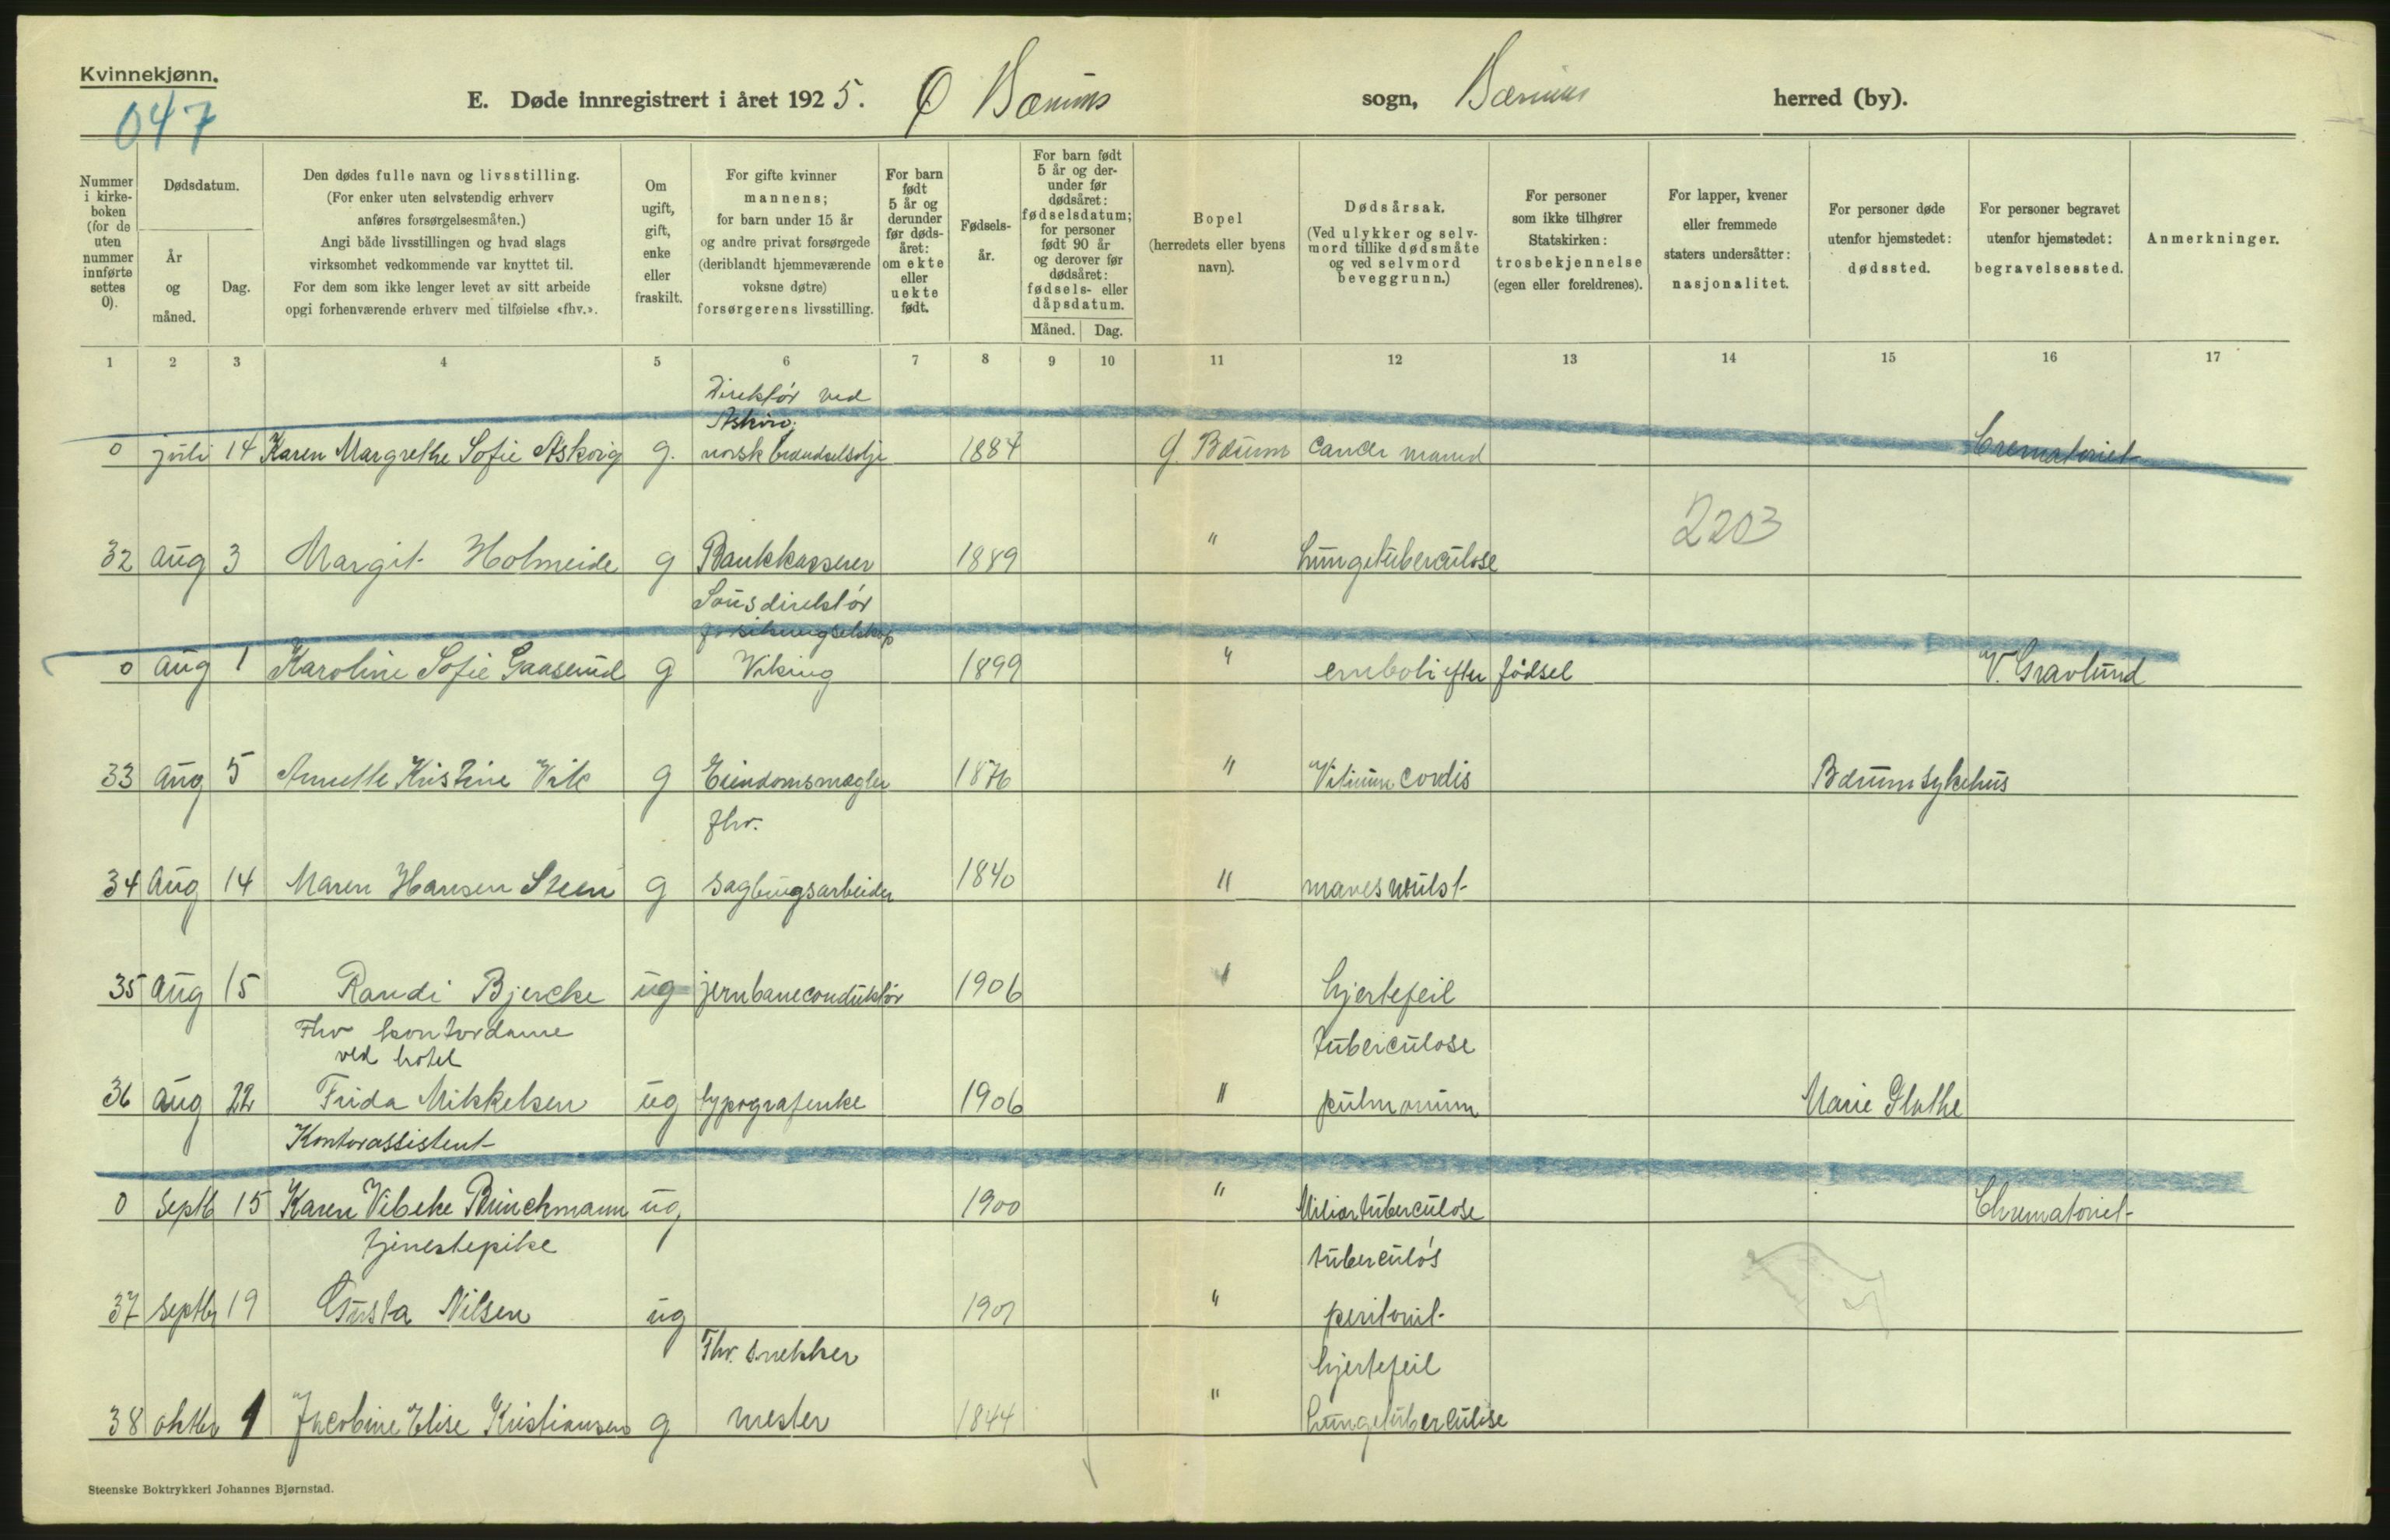 Kvinnekjønn.
047
E. Døde innregistrert i året 1925. Ø Bærums sogn, Bærums herred (by).
Nummer i kirke-boken (for de uten nummer innførte settes 0).
Dødsdatum.
År og måned.
Dag.
Den dødes fulle navn og livsstilling.
(For enker uten selvstendig erhverv
anføres forsørgelsesmåten.)
Angi både livsstillingen og hvad slags
virksomhet vedkommende var knyttet til.
For dem som ikke lenger levet av sitt arbeide
opgi forhenværende erhverv med tilføielse «fhv.».
Om ugift, gift, enke eller fraskilt.
For gifte kvinner
mannens;
for barn under 15 år
og andre privat forsørgede
(deriblandt hjemmeværende
voksne døtre)
forsørgerens livsstilling.
For barn født 5 år og derunder før døds-året: om ekte eller uekte født.
Fødsels-år.
For barn født 5 år og der-under før dødsåret: fødselsdatum; for personer født 90 år og derover før dødsåret: fødsels- eller dåpsdatum.
Måned. Dag.
Bopel
(herredets eller byens
navn).
Dødsårsak.
(Ved ulykker og selv-
mord tillike dødsmåte
og ved selvmord
beveggrunn.)
For personer
som ikke tilhører
Statskirken:
trosbekjennelse
(egen eller foreldrenes).
For lapper, kvener
eller fremmede
staters undersåtter:
nasjonalitet.
For personer døde
utenfor hjemstedet:
dødssted.
For personer begravet
utenfor hjemstedet:
begravelsessted.
Anmerkninger.
1 2 3 4 5 6 7 8 9 10 11 12 13 14 15 16 17
Direktør ved
Askvig
0 juli 14 Karen Margrethe Sofie Askvig g. norsk brændselsolje 1884 Ø. Bærum cancer mamd Crematoriet
2203
32 aug 3 Margit Holmeide g Bankkasserer 1889 " Lungetuberculose
Sousdirektør
forsikringselskap
0 aug 1 Karoline Sofie Gaaserud g Viking 1899 " emboli efter fødsel V. Gravlund
33 aug 5 Annette Kristine Vik g Eiendomsmægler 1876 " Vitium cordis Bærum sykehus
fhv.
34 Aug 14 Maren Hansen Steen g sagbrugsarbeider 1840 " maveswulst
35 aug 15 Randi Bjercke ug jernbaneconduktør 1906 " hjertefeil
Fhv kontordame
ved hotel
tuberculose
36 aug 22 Frida Mikkelsen ug typografenke 1906 " pulmonum Marie Plathe
Kontorassistent
0 septb 15 Karen Vibeke Brinchmann ug 1900 " Miliartuberculose Chrematoriet
tjenestepike
tuberculøs
37 septbr 19 Gusta Nilsen ug 1901 " peritonit
Fhv. snekker
hjertefeil
38 oktbr 1 Jacobine Elise Kristiansen g mester 1844 " Lungetuberculose
Steenske Boktrykkeri Johannes Bjørnstad.